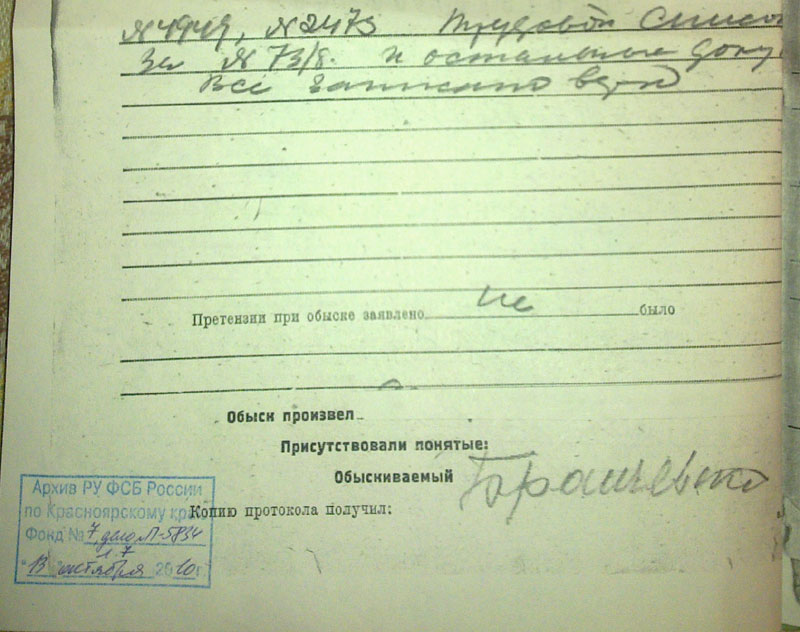 № 4949, № 2473 Трудовой Список
За № 73/8. и остальные доку
Все записано верно
Претензии при обыске заявлено не было
Обыск произвел
Присутствовали понятые:
Обыскиваемый
Копию протокола получил:
Архив РУ ФСБ России
по Красноярскому краю
Фонд № 7, дело П-5834
л. 7
"13" октября 2010г.